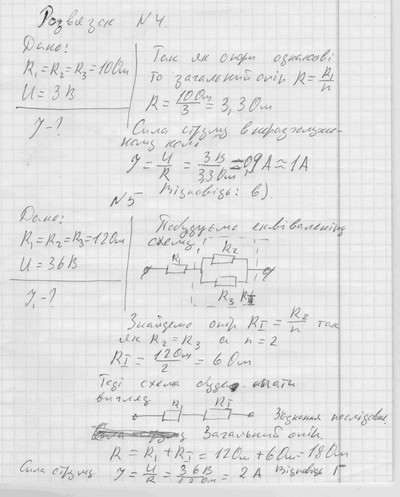 Розвязок №4.
Дано:
R₁=R₂=R₃=10Ом
U=3В
I-?
Так як опори однакові
то загальний опір R=R₁/n
R=10Ом/3=3,3Ом
Сила струму в нерозгалуже-
ному колі
I=U/R=3В/3,3Ом=0,9А≈1А
Відповідь: в).
№5
Дано:
R₁=R₂=R₃=12Ом
U=36В
I₁-?
Побудуємо еквівалентну
схему
R₁ R₂
R₃ RI
Знайдемо опір RI=R₂/n так
як R₂=R₃ а n=2
RI=12Ом/2=6Ом
Тоді схема буде мати
вигляд
R₁ RI Зєднання послідовне
Загальний опір
R=R₁+RI=12Ом+6Ом=18Ом
Сила струму I=U/R=36В/18Ом=2А Відповідь Г